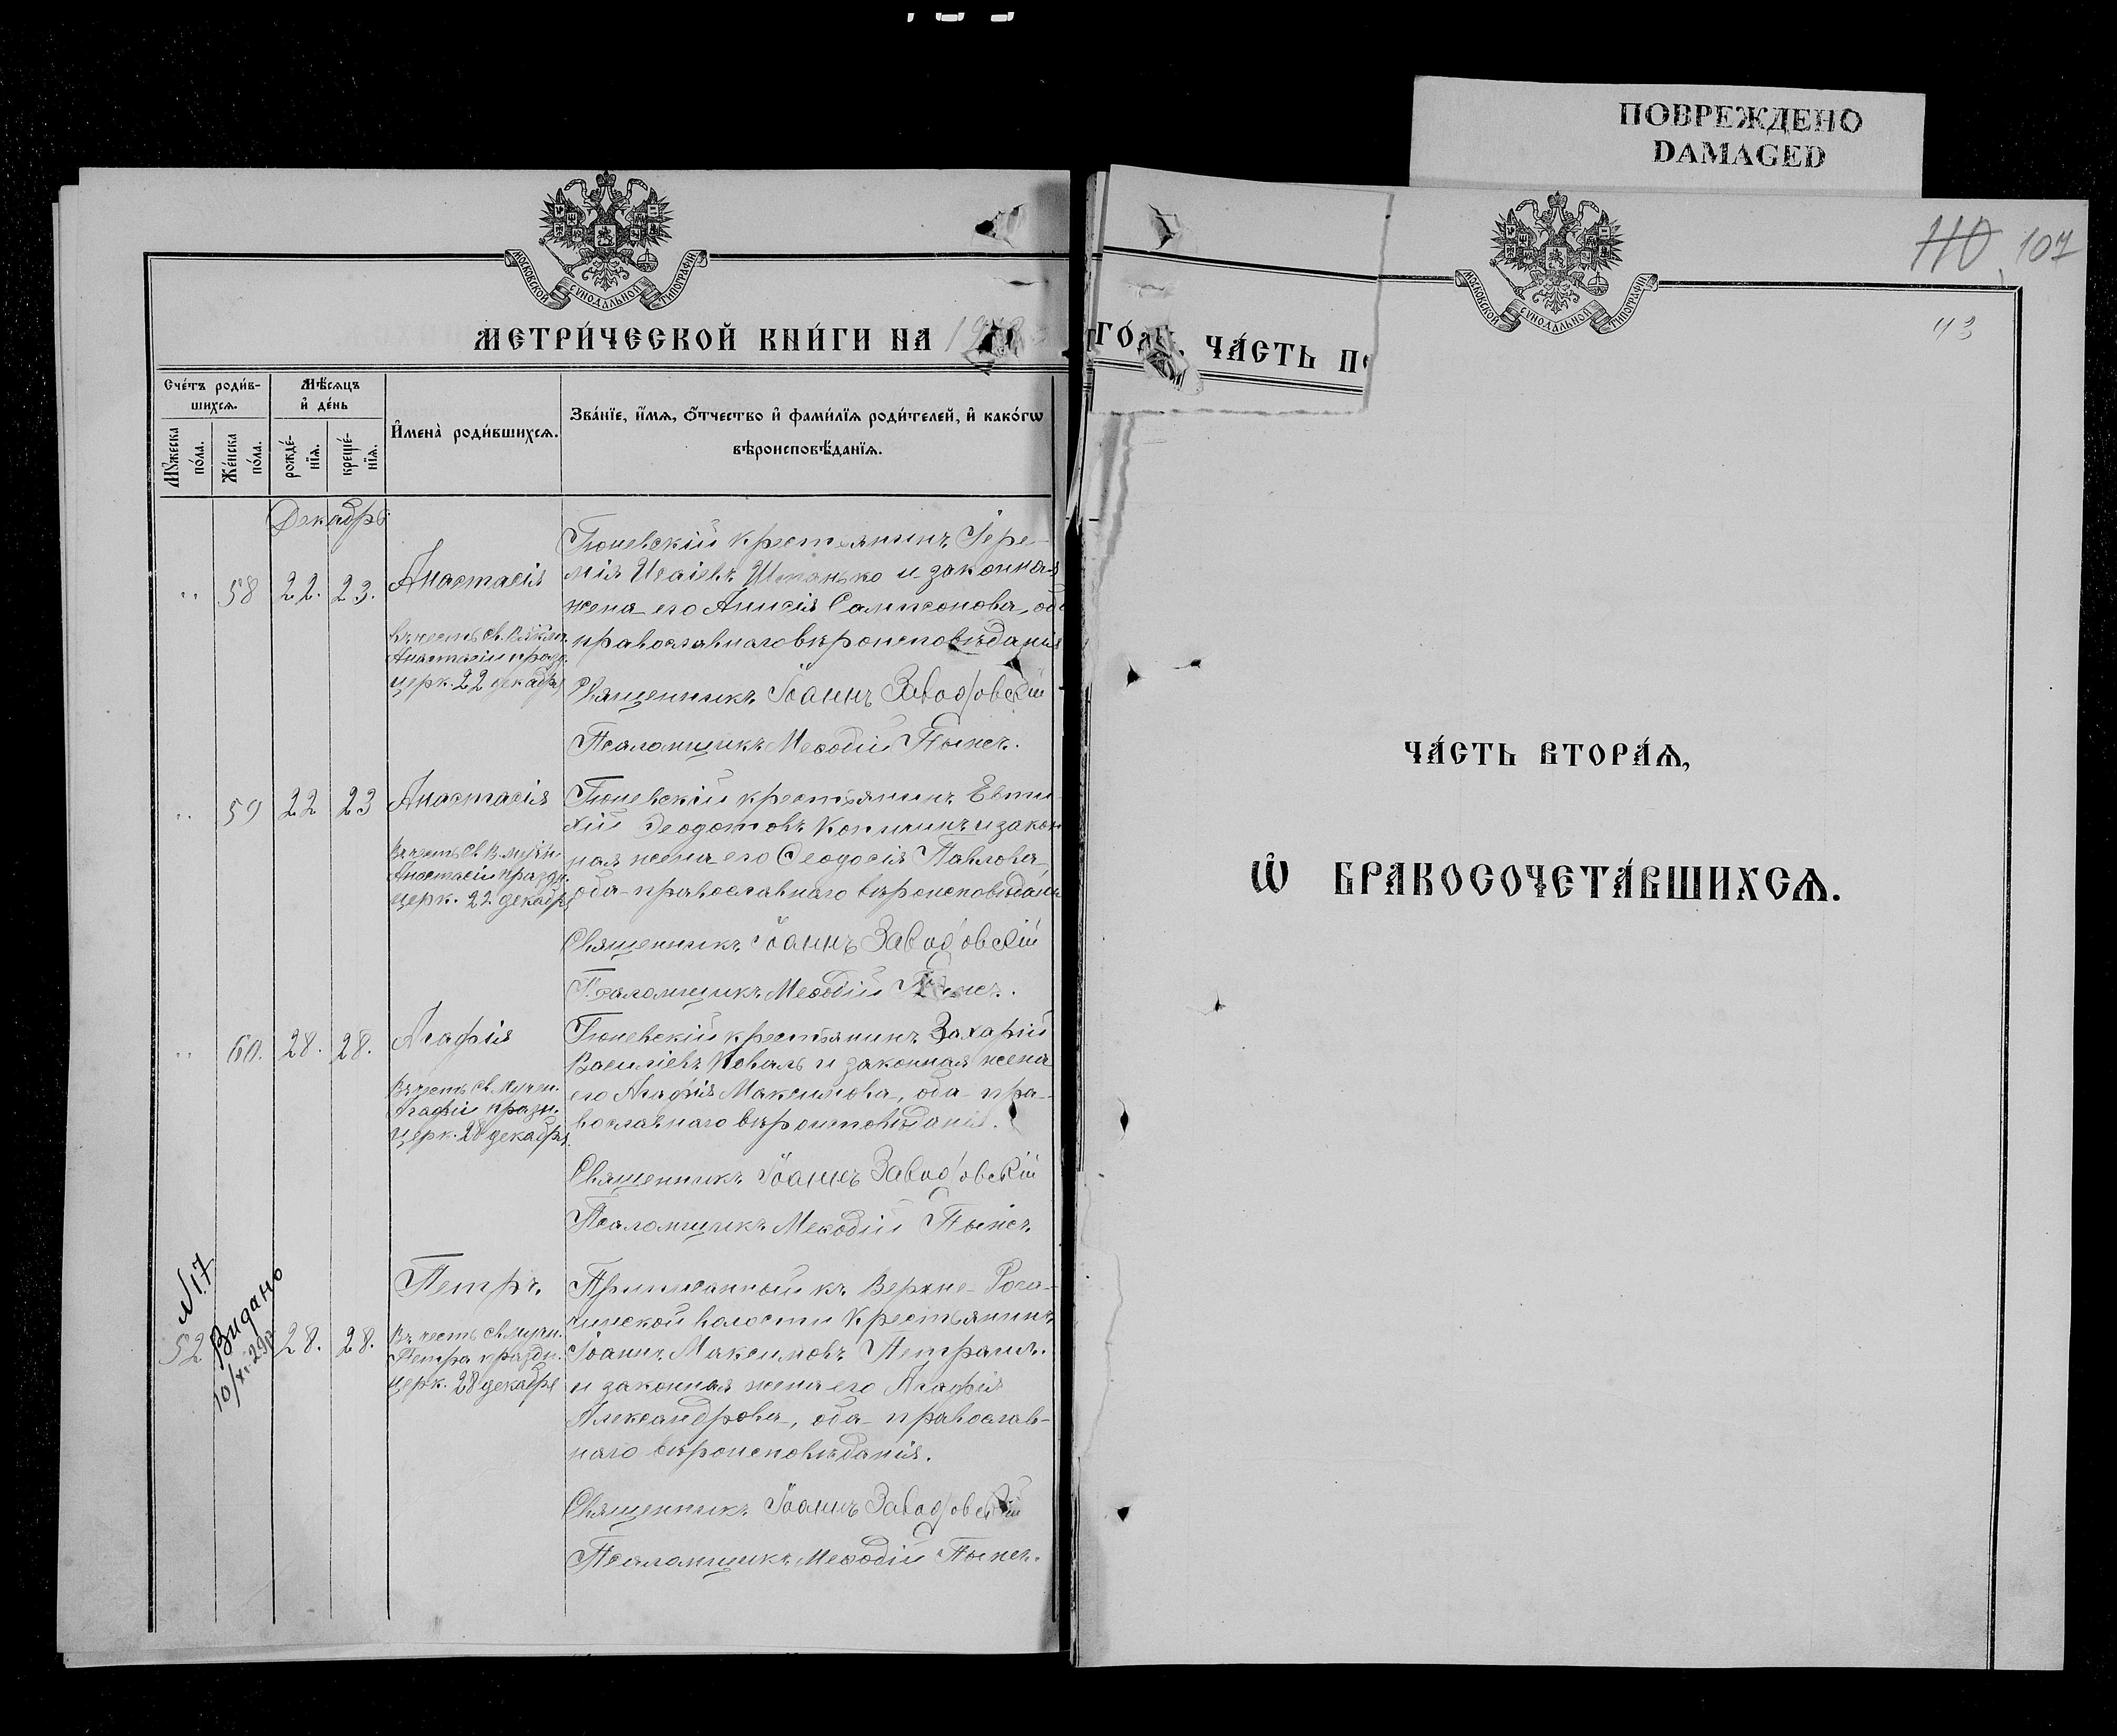 ПОВРЕЖДЕНО
DAMAGED
МОСКОВСКОЙ СѴНОДАЛЬНОЙ ТИПОГРАФІИ
МЕТРИ́ЧЕСКОЙ КНИ́ГИ НА
Сче́тъ роди́вшихсѧ.
Мꙋ́жеска по́ла.
Же́нска по́ла.
Мѣ́сѧцъ и҆ де́нь
рожде́нїѧ.
креще́нїѧ.
И҆мена̀ роди́вшихсѧ.
Зва́нїе, и҆́мѧ, ѻ҆́тчество и҆ фами́лїѧ роди́телей, и҆ како́гѡ
вѣроисповѣ́данїѧ.
Декабрь
58 22. 23. Анастасія
Въ честь св.
Анастасіи празд.
церк. 22 декабря
Гюневскій крестьянинъ Іере-
мія Исаіевъ Шпанько и законная
жена его Анисія Сампсонова, оба
православнаго вѣроисповѣданія
Священникъ Іоаннъ Заводовскій
Псаломщикъ Меѳодій
59 22 23 Анастасія
Въ честь св. В. мучен.
Анастасіи праздн.
церк. 22 декабря
Гюневскій крестьянинъ Евти-
хій Ѳеодотовъ и закон
ная жена его Ѳеодосія Павлова
оба православнаго вѣроисповѣдан
Священникъ Іоаннъ Заводовскій
Псаломщикъ Меѳодій
60. 28. 28. Агафія
Въ честь св. мучен.
Агафіи праздн.
церк. 28 декабря.
Гюневскій крестьянинъ Захарій
Василіевъ Коваль и законная жена
его Агафія Максимова, оба пра-
вославнаго вѣроисповѣданія.
Священникъ Іоаннъ Заводовскій
Псаломщикъ Меѳодій
N 17
Видано
10/XI-29р
52 28. 28. Петръ.
Въ честь св. мучн.
Петра праздн.
церк. 28 декабря
Приписанный къ Верхне-Рога-
чикской волости крестьянинъ
Іоаннъ Максимовъ
и законная жена его Агафія
Александрова, оба православ-
наго вѣроисповѣданія.
Священникъ Іоаннъ Заводовскій
Псаломщикъ Меѳодій
ЧА́СТЬ
МОСКОВСКОЙ СѴНОДАЛЬНОЙ ТИПОГРАФІИ
110 107
43
ЧА́СТЬ ВТОРА́Ѧ,
Ѽ БРАКОСОЧЕТА́ВШИХСѦ.